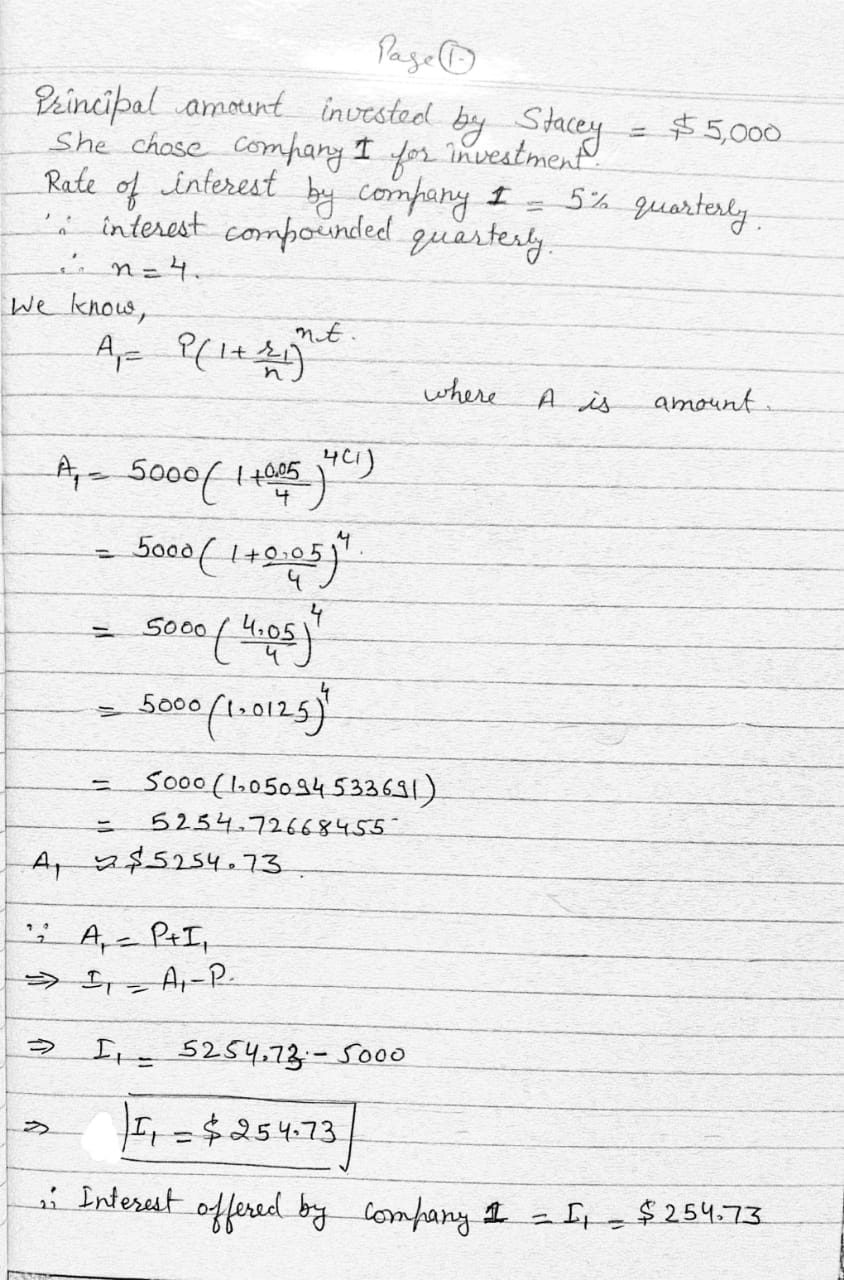 Page ①
Principal amount invested by Stacey = $5,000
She chose company I for investment.
Rate of interest by company I = 5% quarterly.
∵ interest compounded quarterly.
∴ n=4.
We know,
A₁= P(1+r₁/n)^n.t.
where A is amount.
A₁= 5000(1+0.05/4)^4(1)
= 5000(1+0.05/4)^4.
= 5000(4.05/4)^4
= 5000(1.0125)^4
= 5000(1.05094533691)
= 5254.72668455
A₁ ≈ $5254.73.
∵ A₁ = P+I₁
⇒ I₁ = A₁-P.
⇒ I₁ = 5254.73 - 5000
⇒ I₁ = $254.73
∴ Interest offered by company I = I₁ = $254.73